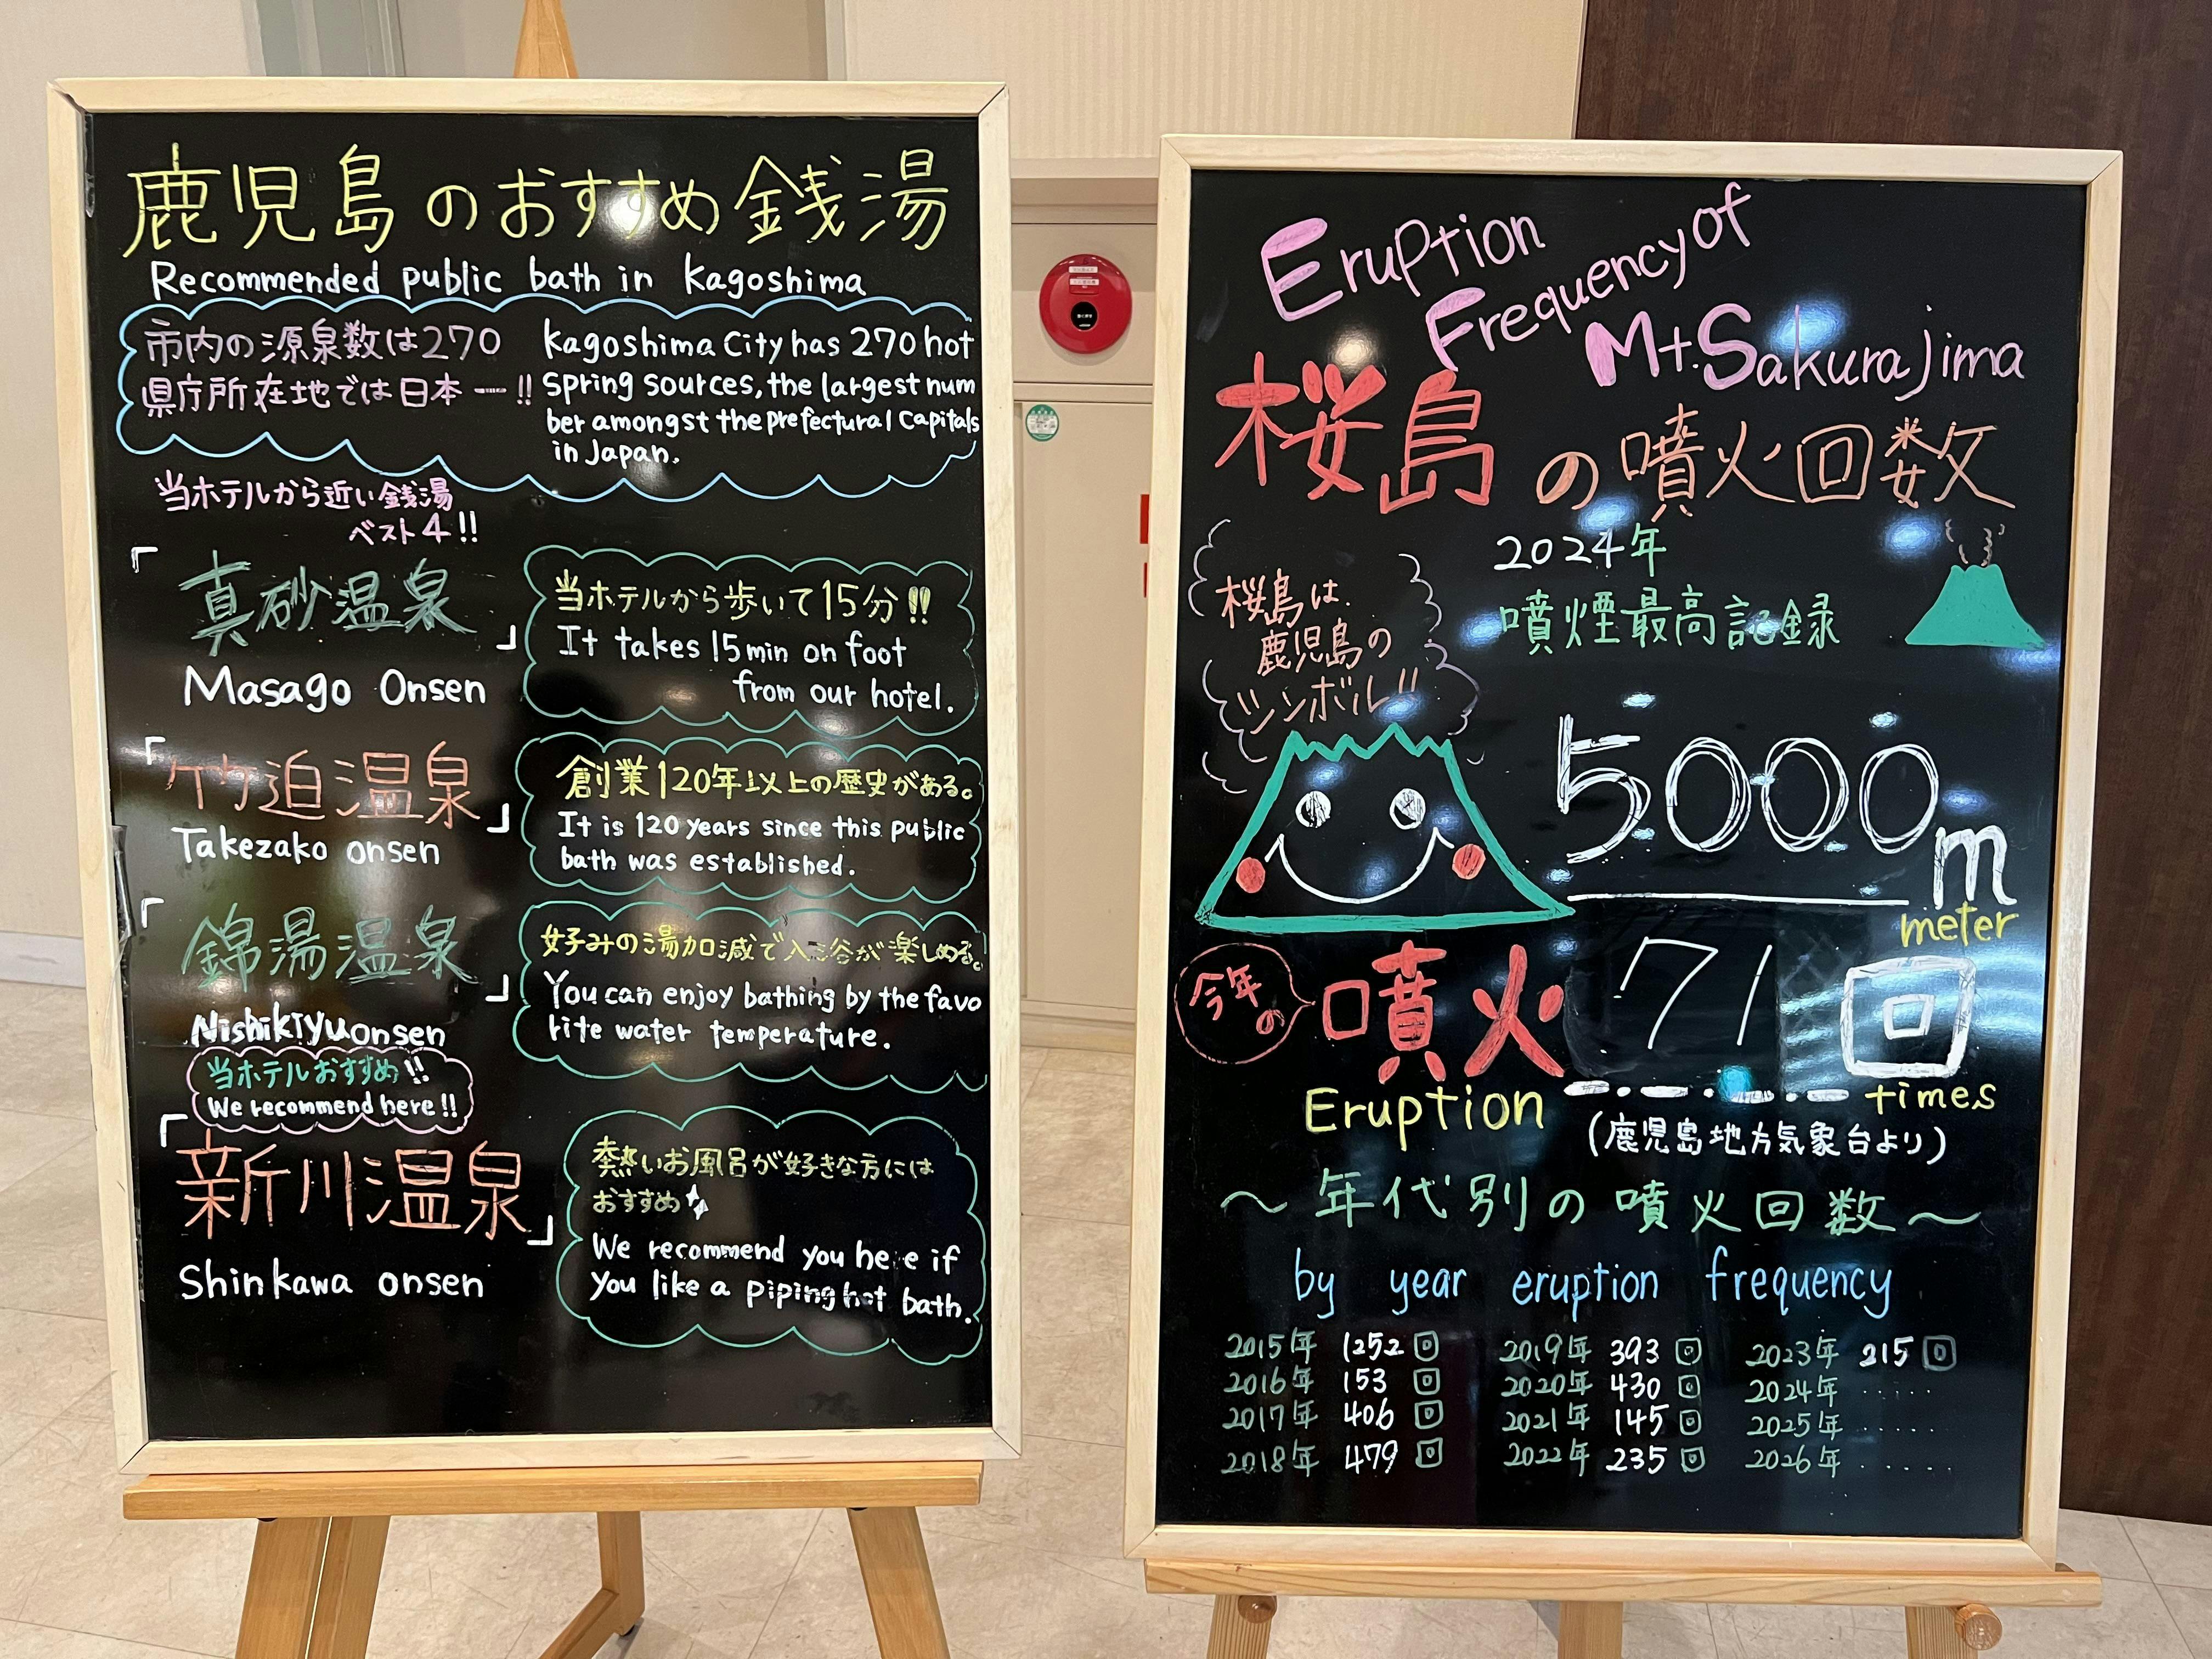 鹿児島のおすすめ銭湯
Recommended public bath in Kagoshima
市内の源泉数は270
県庁所在地では日本一!!
Kagoshima City has 270 hot
spring sources, the largest num
ber amongst the prefectural capitals
in Japan.
当ホテルから近い銭湯
ベスト4!!
「真砂温泉」
Masago Onsen
当ホテルから歩いて15分!!
It takes 15min on foot
from our hotel.
「竹迫温泉」
Takezako onsen
創業120年以上の歴史がある。
It is 120 years since this public
bath was established.
「錦湯温泉」
Nishikiyu onsen
好みの湯加減で入浴が楽しめる。
You can enjoy bathing by the favo
rite water temperature.
当ホテルおすすめ!!
We recommend here!!
「新川温泉」
Shinkawa onsen
熱いお風呂が好きな方には
おすすめ
We recommend you here if
you like a piping hot bath.
Eruption
Frequency of
Mt. Sakurajima
桜島の噴火回数
2024年
噴煙最高記録
桜島は
鹿児島の
シンボル!!
5000m
meter
今年の
噴火 71回
Eruption times
(鹿児島地方気象台より)
〜年代別の噴火回数〜
by year eruption frequency
2015年 1252回 2019年 393回 2023年 215回
2016年 153回 2020年 430回 2024年 .....
2017年 406回 2021年 145回 2025年 .....
2018年 479回 2022年 235回 2026年 .....